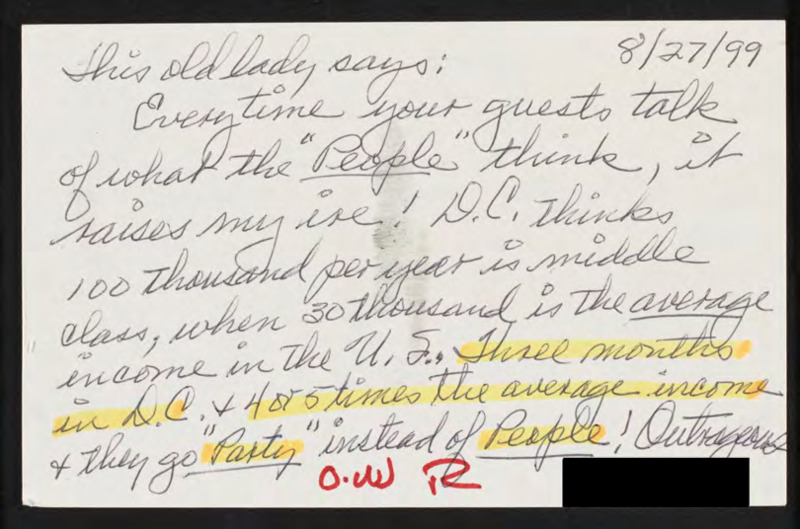 This old lady says: 8/27/99
Everytime your guests talk
of what the "People" think, it
raises my ire! D.C. thinks
100 thousand per year is middle
class, when 30 thousand is the average
income in the U.S., Three months
in D.C. & 4 or 5 times the average income
& they go "Party" instead of People! Outrageous
O.W R